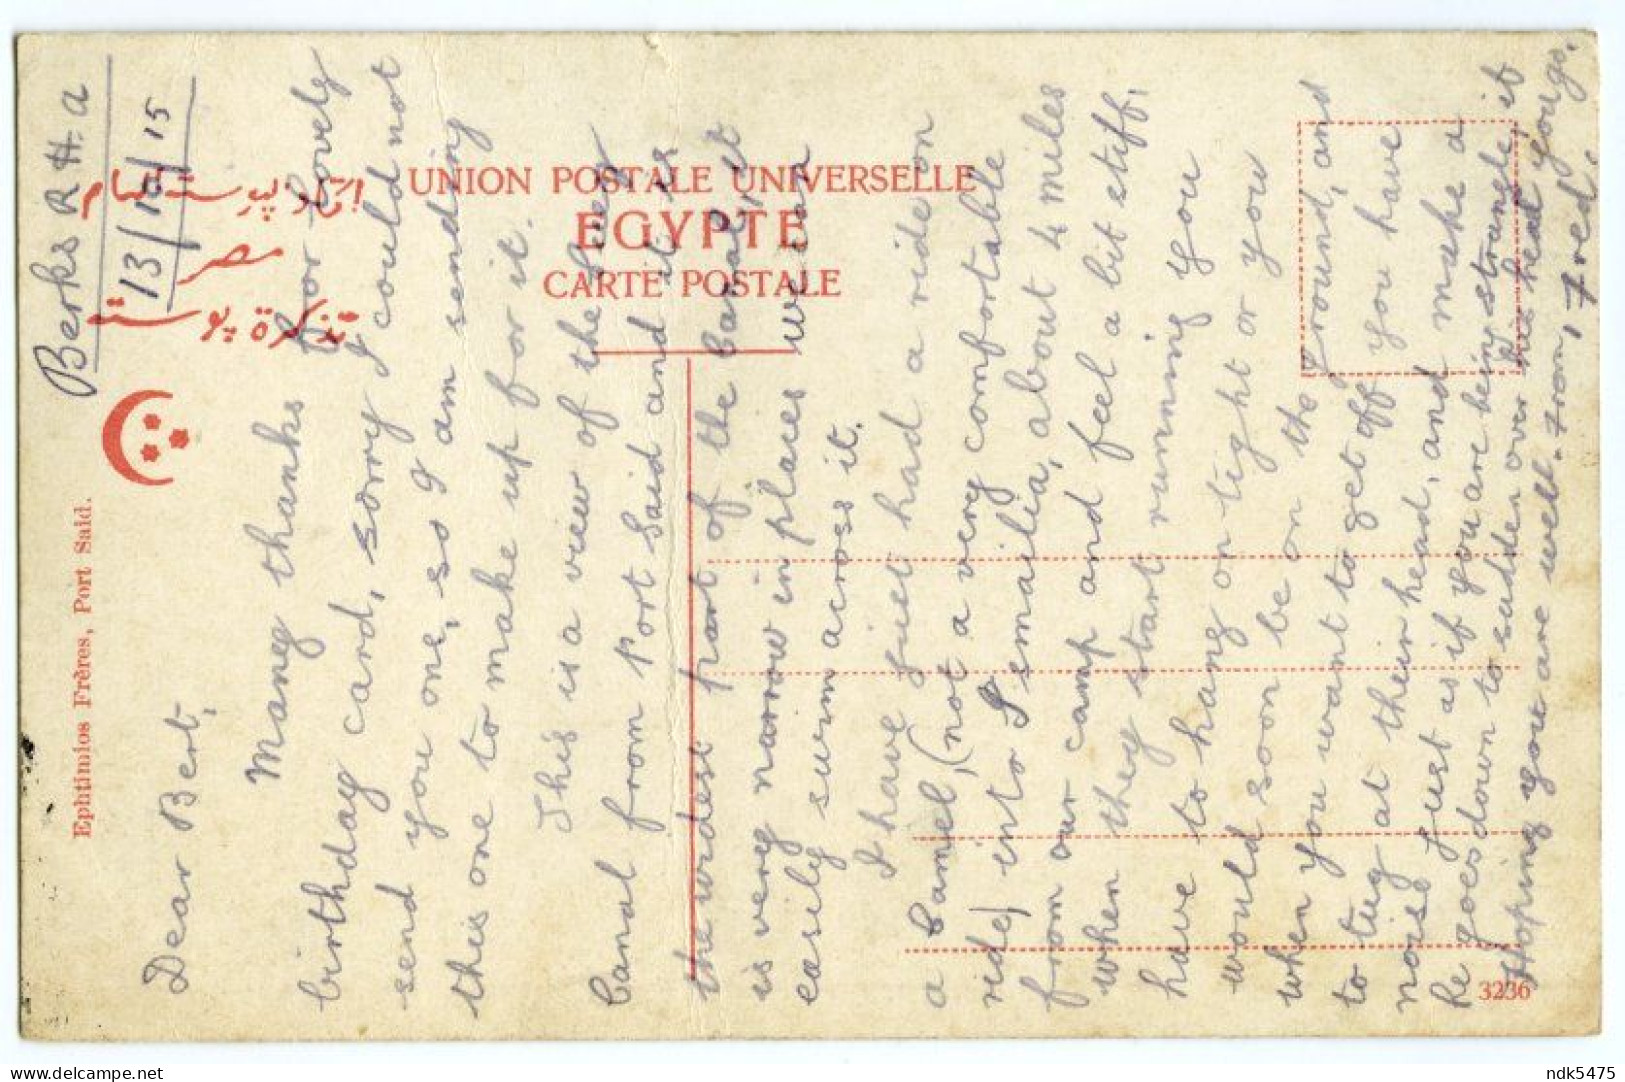 Berks R H.A
13/10/15
Dear Bert,
Many thanks for lovely
birthday card, sorry I could not
send you one, so I am sending
this one to make up for it.
This is a view of the Suez
Canal from Port Said and it is
the widest part of the Canal, it
is very narrow in places we can
easily swim across it.
I have just had a ride on
a Camel, (not a very comfortable
ride) into Ismailia, about 4 miles
from our camp and feel a bit stiff,
when they start running you
have to hang on tight or you
would soon be on the ground, and
when you want to get off you have
to tug at their head, and make a
noise just as if you are being strangled, it
he goes down to sudden over his head you go.
Hoping you are well. From, Fred.
UNION POSTALE UNIVERSELLE
EGYPTE
CARTE POSTALE
مصر
Ephtimios Frères, Port Said.
3236
delcampe.net
ndk5475